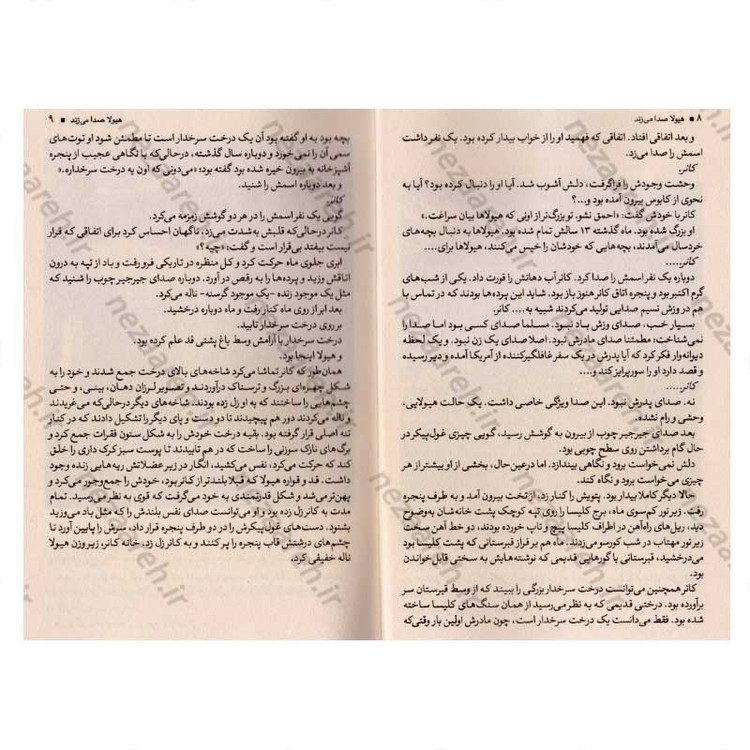 ۸ ■ هیولا صدا می‌زند
و بعد اتفاقی افتاد. اتفاقی که فهمید او را از خواب بیدار کرده بود. یک نفر داشت
اسمش را صدا می‌زد.
کانر.
وحشت وجودش را فراگرفت، دلش آشوب شد. آیا او را دنبال کرده بود؟ آیا به
نحوی از کابوس بیرون آمده بود و...؟
کانر با خودش گفت: «احمق نشو. تو بزرگ‌تر از اونی که هیولاها بیان سراغت.»
او بزرگ شده بود. ماه گذشته ۱۳ سالش تمام شده بود. هیولاها به دنبال بچه‌های
خردسال می‌آمدند، بچه‌هایی که خودشان را خیس می‌کنند، هیولاها برای....
کانر.....
دوباره یک نفر اسمش را صدا کرد. کانر آب دهانش را قورت داد. یکی از شب‌های
گرم اکتبر بود و پنجره اتاق کانر هنوز باز بود. شاید این پرده‌ها بودند که در تماس با
هم در وزش نسیم صدایی تولید می‌کردند شبیه به.... کانر.
بسیار خب، صدای وزش باد نبود. مسلما صدای کسی بود اما صدا را
نمی‌شناخت؛ مطمئنا صدای مادرش نبود. اصلا صدای یک زن نبود. و یک لحظه
دیوانه‌وار فکر کرد که آیا پدرش در یک سفر غافلگیرکننده از آمریکا آمده و دیر رسیده
و قصد دارد او را سورپرایز کند و....
کانر.....
نه. صدای پدرش نبود. این صدا ویژگی خاصی داشت. یک حالت هیولایی،
وحشی و رام نشده.
بعد صدای جیرجیر چوب از بیرون به گوشش رسید، گویی چیزی غول‌پیکر در
حال گام برداشتن روی سطح چوبی بود.
دلش نمی‌خواست برود و نگاهی بیندازد. اما درعین‌حال، بخشی از او بیشتر از هر
چیزی می‌خواست برود و نگاه کند.
حالا دیگر کاملا بیدار بود. پتویش را کنار زد، از تخت بیرون آمد و به طرف پنجره
رفت. زیر نور کم‌سوی ماه، برج کلیسا را روی تپه کوچک پشت خانه‌شان به‌وضوح
دید، ریل‌های راه‌آهن در اطراف کلیسا پیچ و تاپ خورده بودند، دو خط آهن سخت
زیر نور مهتاب در شب کورسو می‌زدند. ماه هم بر فراز قبرستانی که پشت کلیسا بود
می‌درخشید، قبرستانی با گورهایی قدیمی که نوشته‌هایش به سختی قابل‌خواندن
بود.
کانر همچنین می‌توانست درخت سرخدار بزرگی را ببیند که از وسط قبرستان سر
برآورده بود. درختی قدیمی که به نظر می‌رسید از همان سنگ‌های کلیسا ساخته
شده بود. فقط می‌دانست یک درخت سرخدار است، چون مادرش اولین بار وقتی‌که
هیولا صدا می‌زند ■ ۹
بچه بود به او گفته بود آن یک درخت سرخدار است تا مطمئن شود او توت‌های
سمی آن را نمی‌خورد و دوباره سال گذشته، درحالی‌که با نگاهی عجیب از پنجره
آشپزخانه به بیرون خیره شده بود گفته بود: «می‌دونی که اون یه درخت سرخداره.»
و بعد دوباره اسمش را شنید.
کانر.
گویی یک نفر اسمش را در هر دو گوشش زمزمه می‌کرد.
کانر درحالی‌که قلبش به‌شدت می‌زد، ناگهان احساس کرد برای اتفاقی که قرار
نیست بیفتد بی‌قرار است و گفت: «چیه؟»
ابری جلوی ماه حرکت کرد و کل منظره در تاریکی فرو رفت و باد از تپه به درون
اتاقش وزید و پرده‌ها را به رقص در آورد. دوباره صدای جیرجیر چوب را شنید که
مثل یک موجود زنده -یک موجود گرسنه- ناله می‌کرد.
بعد ابر از روی ماه کنار رفت و ماه دوباره درخشید.
بر روی درخت سرخدار تابید.
درخت سرخدار با آرامش وسط باغ پشتی قد علم کرده بود.
و هیولا اینجا بود.
همان‌طور که کانر تماشا می‌کرد شاخه‌های بالای درخت جمع شدند و خود را به
شکل چهره‌ای بزرگ و ترسناک درآوردند و تصویر لرزان دهان، بینی، و حتی
چشم‌هایی را ساختند که به او زل زده بودند. شاخه‌های دیگر درحالی‌که می‌غریدند
و ناله می‌کردند دور هم پیچیدند تا دو دست و پای دیگر را تشکیل دادند که در کنار
تنه اصلی قرار گرفته بود. بقیه درخت خودش را به شکل ستون فقرات جمع کرد و
برگ‌های نازک سوزنی را ساخت که در هم تابیدند تا پوست سبز کرک داری را خلق
کند که حرکت می‌کرد، نفس می‌کشید، انگار در زیر عضلاتش ریه‌هایی زنده وجود
داشت. قد و قواره هیولا که قبلا بلندتر از کانر بود، خودش را جمع‌وجور می‌کرد و
پهن‌تر می‌شد و شکل قدرتمندی به خود می‌گرفت که قوی به نظر می‌رسید. تمام
مدت به کانر زل زده بود و او می‌توانست صدای نفس بلندش را که مثل باد می‌وزید
بشنود. دست‌های غول‌پیکرش را در دو طرف پنجره قرار داد، سرش را پایین آورد تا
چشم‌های درشتش قاب پنجره را پر کنند و به کانر زل زد. خانه کانر، زیر وزن هیولا
ناله خفیفی کرد.
nezaareh.ir